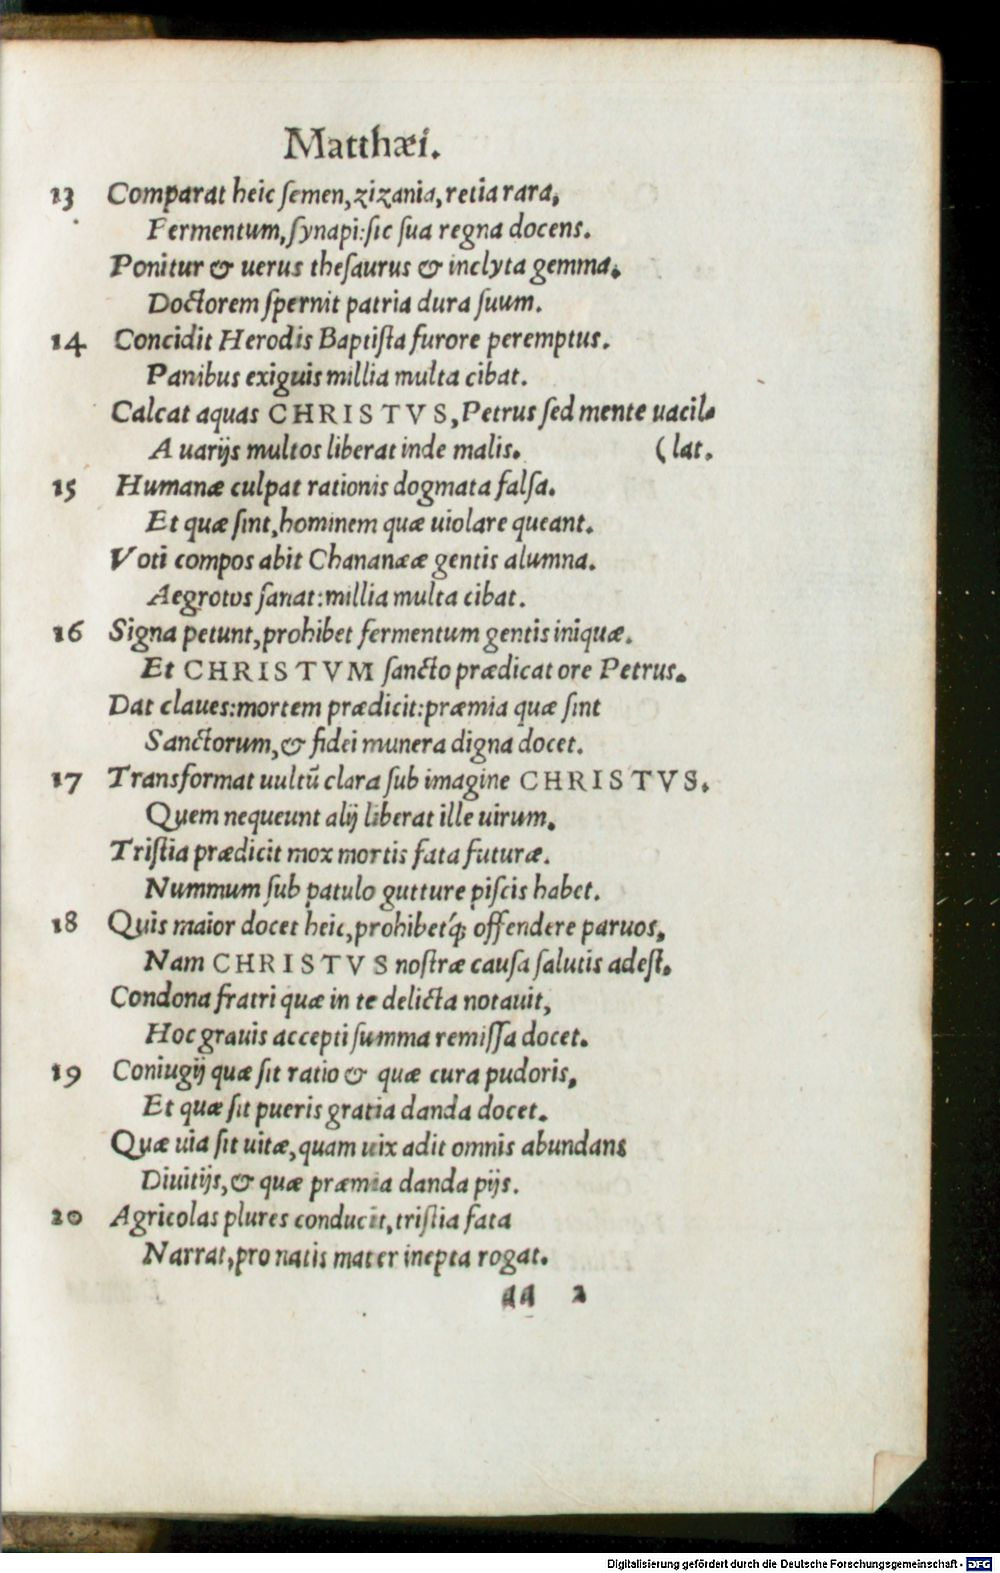 Matthæi.
13 Comparat heic ſemen, zizania, retia rara,
Fermentum, ſynapi: ſic ſua regna docens.
Ponitur & uerus theſaurus & inclyta gemma,
Doctorem ſpernit patria dura ſuum.
14 Concidit Herodis Baptiſta furore peremptus.
Panibus exiguis millia multa cibat.
Calcat aquas CHRISTVS, Petrus ſed mente uacil-
A uarijs multos liberat inde malis. (lat.
15 Humanæ culpat rationis dogmata falſa.
Et quæ ſint, hominem quæ uiolare queant.
Voti compos abit Chananææ gentis alumna.
Aegrotos ſanat: millia multa cibat.
16 Signa petunt, prohibet fermentum gentis iniquæ.
Et CHRISTVM ſancto prædicat ore Petrus.
Dat claues: mortem prædicit: præmia quæ ſint
Sanctorum, & fidei munera digna docet.
17 Transformat uultū clara ſub imagine CHRISTVS.
Quem nequeunt alij liberat ille uirum.
Triſtia prædicit mox mortis fata futuræ.
Nummum ſub patulo gutture piſcis habet.
18 Quis maior docet heic, prohibet´q; offendere paruos,
Nam CHRISTVS noſtræ cauſa ſalutis adeſt.
Condona fratri quæ in te delicta notauit,
Hoc grauis accepti ſumma remiſſa docet.
19 Coniugij quæ ſit ratio & quæ cura pudoris,
Et quæ ſit pueris gratia danda docet.
Quæ uia ſit uitæ, quam uix adit omnis abundans
Diuitijs, & quæ præmia danda pijs.
20 Agricolas plures conducit, triſtia fata
Narrat, pro natis mater inepta rogat.
aa 2
Digitalisierung gefördert durch die Deutsche Forschungsgemeinschaft - DFG